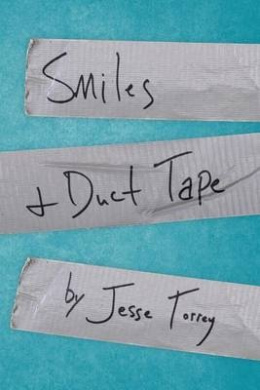 Smiles
+ Duct Tape
by Jesse Torrey